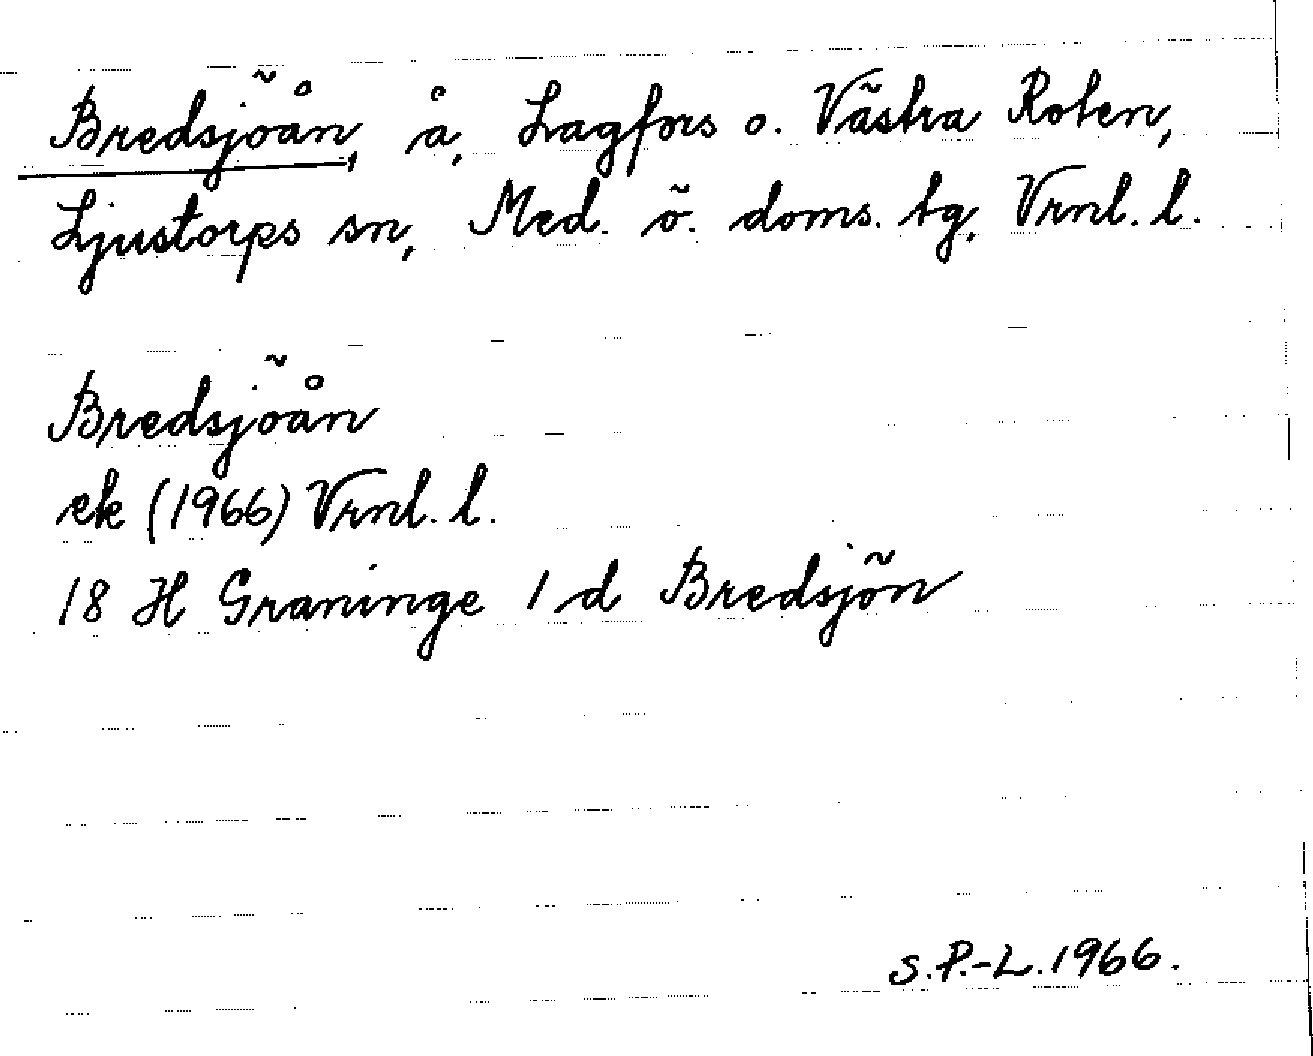 Bredsjöån, å, Lagfors o. Västra Roten,
Ljustorps sn, Med. ö. doms. tg, Vrnl. l.
Bredsjöån
ek (1966) Vrnl. l.
18 H Graninge 1 d Bredsjön
S.P.-L. 1966.